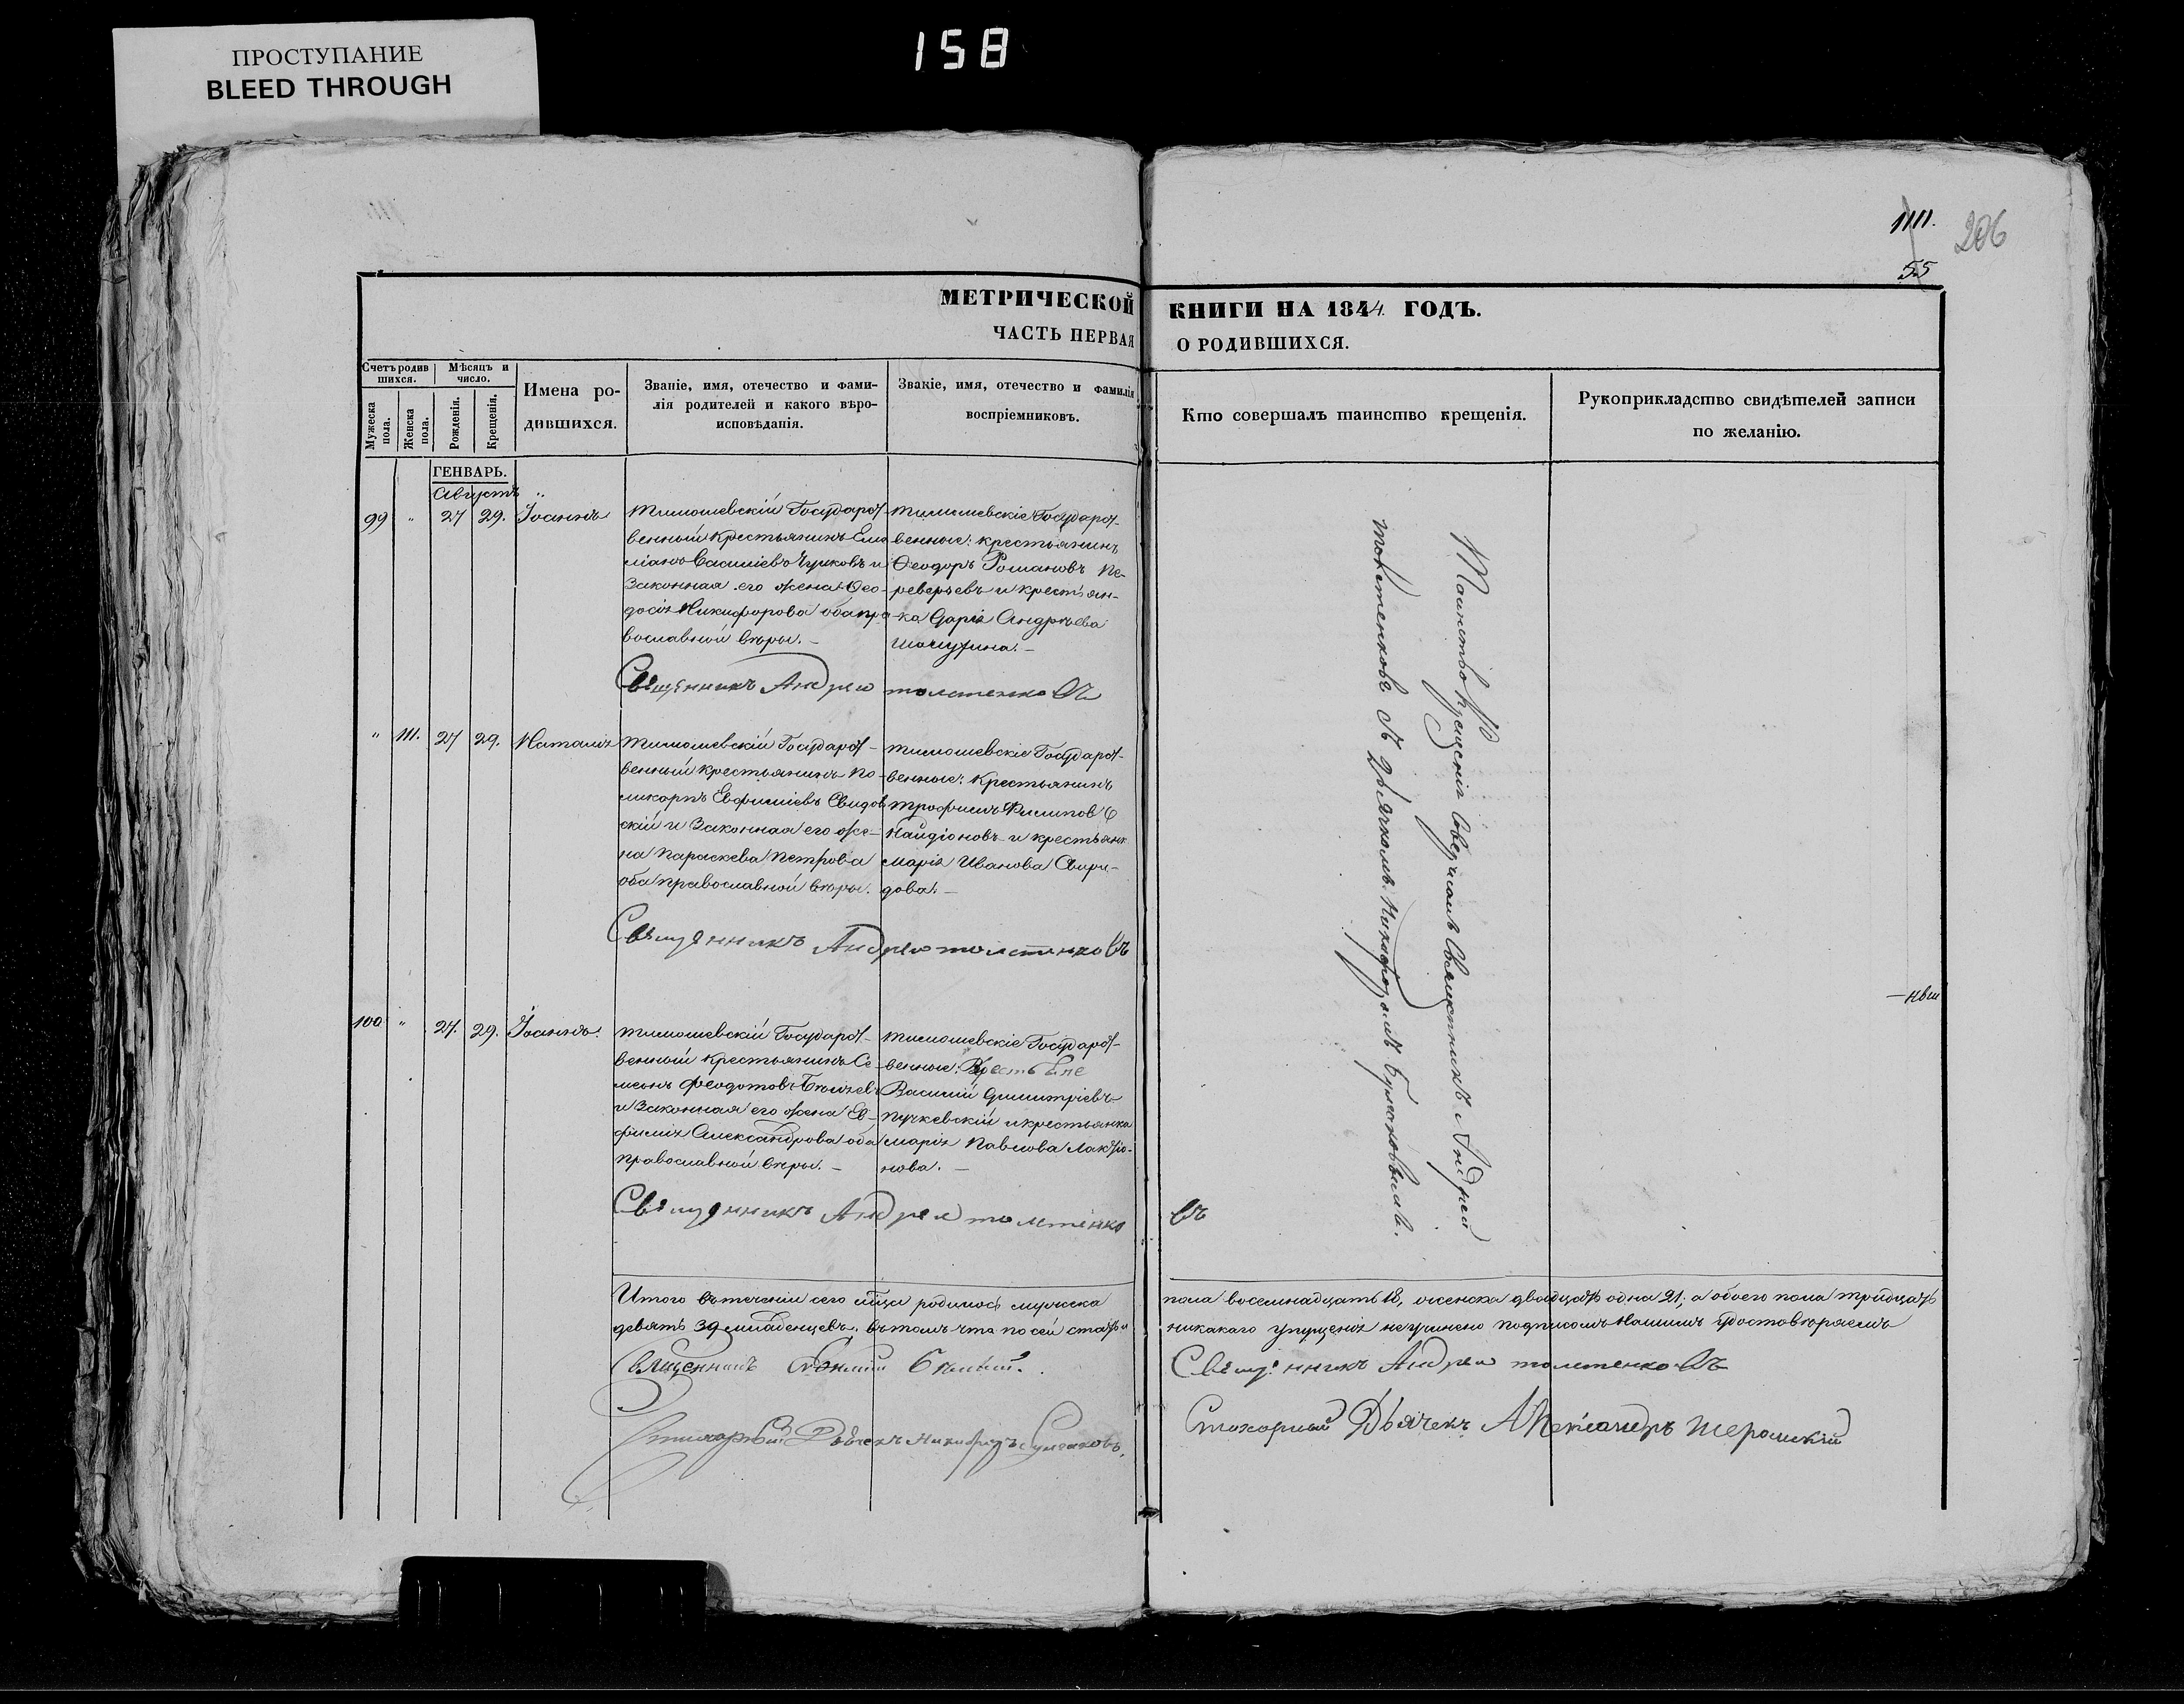 ПРОСТУПАНИЕ
BLEED THROUGH
158
1111.
206
55
МЕТРИЧЕСКОЙ КНИГИ НА 1844. ГОДЪ.
ЧАСТЬ ПЕРВАЯ О РОДИВШИХСЯ.
Счетъ родив
шихся.
Мѣсяцъ и
число.
Мужеска
пола.
Женска
пола.
Рожденія.
Крещенія.
Имена ро-
дившихся.
Званіе, имя, отечество и фами-
лія родителей и какого вѣро-
исповѣданія.
Званіе, имя, отечество и фамилія
воспріемниковъ.
Кто совершалъ таинство крещенія.
Рукоприкладство свидѣтелей записи
по желанію.
ГЕНВАРЬ.
Августъ
99 " 27 29. Іоаннъ
Тимошевскій Государст-
венный крестьянинъ Еми
ліанъ Василіевъ Чуиковъ и
Законная его жена Ѳео-
досія Никифорова оба пра
вославной вѣры.-
Тимошевскіе Государст-
венные: крестьянинъ
Ѳеодоръ Романовъ Пе-
реверзевъ и крестьян-
ка Дарія Андрѣева
Священникъ Андрей толстенковъ
" 111. 27 29. Наталія
Тимошевскій Государст-
венный крестьянинъ По-
ликарпъ Евфиміевъ Свидов
скій и Законная его же-
на Параскева Петрова
оба православной вѣры.
Тимошевскіе Государст-
венные: Крестьянинъ
Трофимъ Филипов
Найдіоновъ и крестьянк
Марія Иванова Свири-
дова.-
Священникъ Андрей толстенковъ
100 " 27. 29. Іоаннъ.
Тимошевскій Государст-
венный крестьянинъ Се-
меонъ Феодотовъ
и Законная его жена Ев-
фимія Александрова оба
православной вѣры.-
Тимошевскіе Государст-
венные:
Василій Димитріевъ
Пучкевскій и крестьянка
Марія Павлова Лактіо-
нова.-
Священникъ Андрей толстенковъ
Таинство Крещенія Совершалъ Священникъ Андрей
толстенковъ съ дьячкомъ Никифоромъ Булгаковымъ.
Итого въ теченіи сего м͠ца родилось мужеска пола восемнадцать 18, женска двадцать одна 21; а обоего пола тридцать
девять 39 младенцевъ. въ томъ что по сей статьи никакаго упущенія не учинено подписомъ нашимъ удостовѣряемъ
Священникъ
Священникъ Андрей толстенковъ
Дьячекъ Никифоръ Булгаковъ.
Дьячекъ Александръ